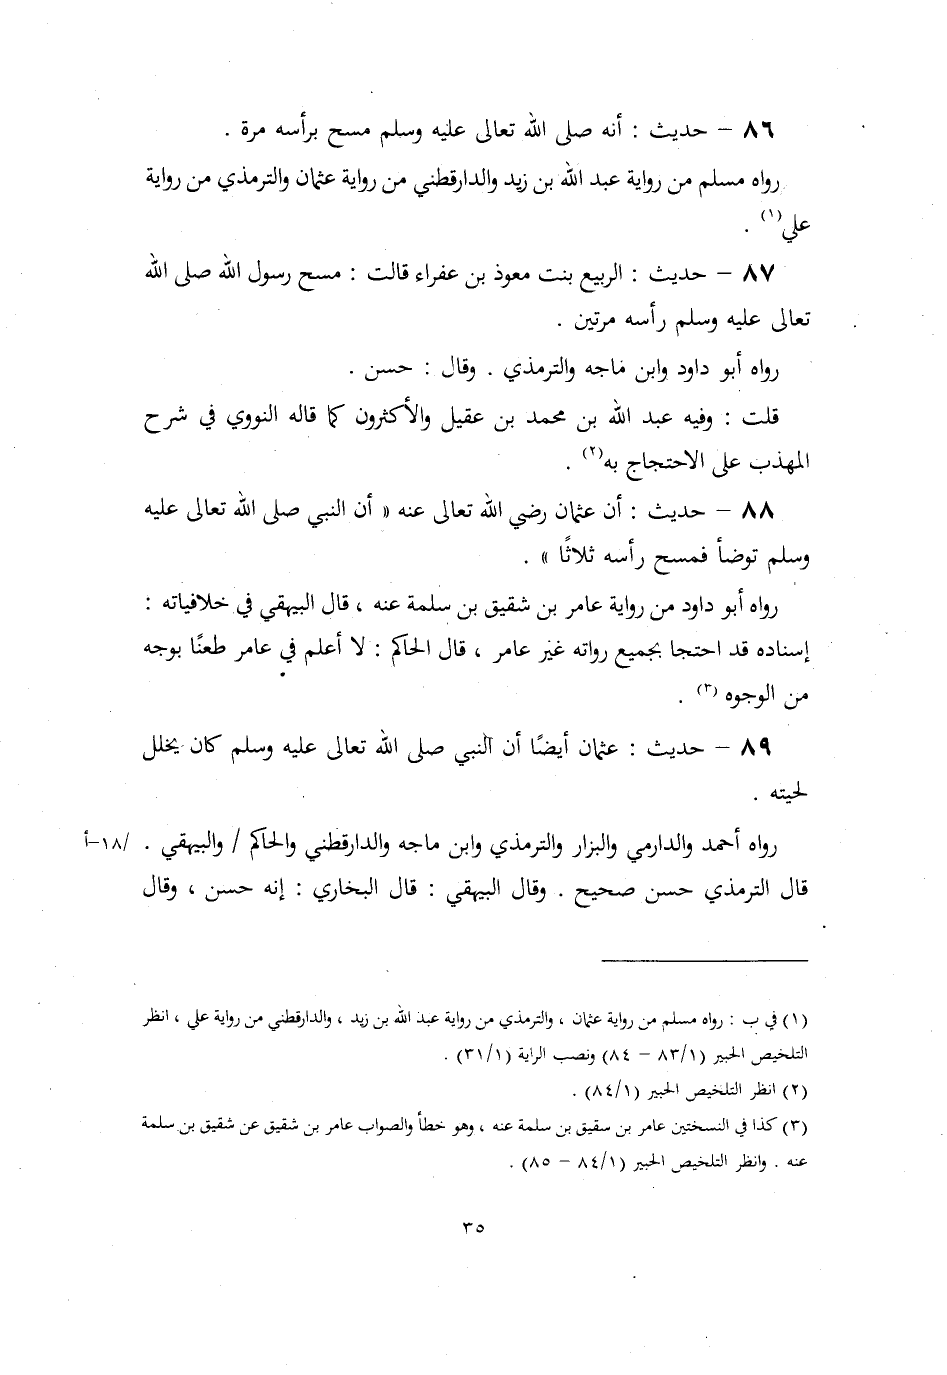 ٨٦ – حديث : أنه صلى الله تعالى عليه وسلم مسح برأسه مرة .
رواه مسلم من رواية عبد الله بن زيد والدارقطني من رواية عثمان والترمذي من رواية
علي(١) .
٨٧ – حديث : الربيع بنت معوذ بن عفراء قالت : مسح رسول الله صلى الله
تعالى عليه وسلم رأسه مرتين .
رواه أبو داود وابن ماجه والترمذي . وقال : حسن .
قلت : وفيه عبد الله بن محمد بن عقيل والأكثرون كما قاله النووي في شرح
المهذب على الاحتجاج به(٢) .
٨٨ – حديث : أن عثمان رضي الله تعالى عنه « أن النبي صلى الله تعالى عليه
وسلم توضأ فمسح رأسه ثلاثًا » .
رواه أبو داود من رواية عامر بن شقيق بن سلمة عنه ، قال البيهقي في خلافياته :
إسناده قد احتجا بجميع رواته غير عامر ، قال الحاكم : لا أعلم في عامر طعنًا بوجه
من الوجوه (٣) .
٨٩ – حديث : عثمان أيضًا أن النبي صلى الله تعالى عليه وسلم كان يخلل
لحيته .
رواه أحمد والدارمي والبزار والترمذي وابن ماجه والدارقطني والحاكم / والبيهقي . /١٨–أ
قال الترمذي حسن صحيح . وقال البيهقي : قال البخاري : إنه حسن ، وقال
(١) في ب : رواه مسلم من رواية عثمان ، والترمذي من رواية عبد الله بن زيد ، والدارقطني من رواية علي ، انظر
التلخيص الحبير (٨٣/١ – ٨٤) ونصب الراية (٣١/١) .
(٢) انظر التلخيص الحبير (٨٤/١) .
(٣) كذا في النسختين عامر بن سقيق بن سلمة عنه ، وهو خطأ والصواب عامر بن شقيق عن شقيق بن سلمة
عنه . وانظر التلخيص الحبير (٨٤/١ – ٨٥) .
٣٥